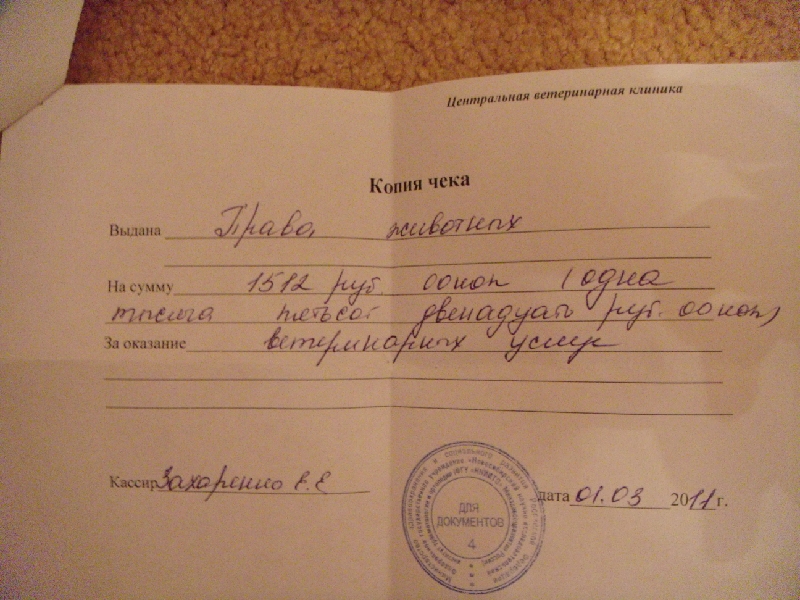 Центральная ветеринарная клиника
Копия чека
Выдана Права животных
На сумму 1512 руб. 00коп (одна
тысяча пятьсот двенадцать руб. 00коп)
За оказание ветеринарных услуг
Кассир Захаренко Е.Е
дата 01.03 2011 г.
ДЛЯ
ДОКУМЕНТОВ
4